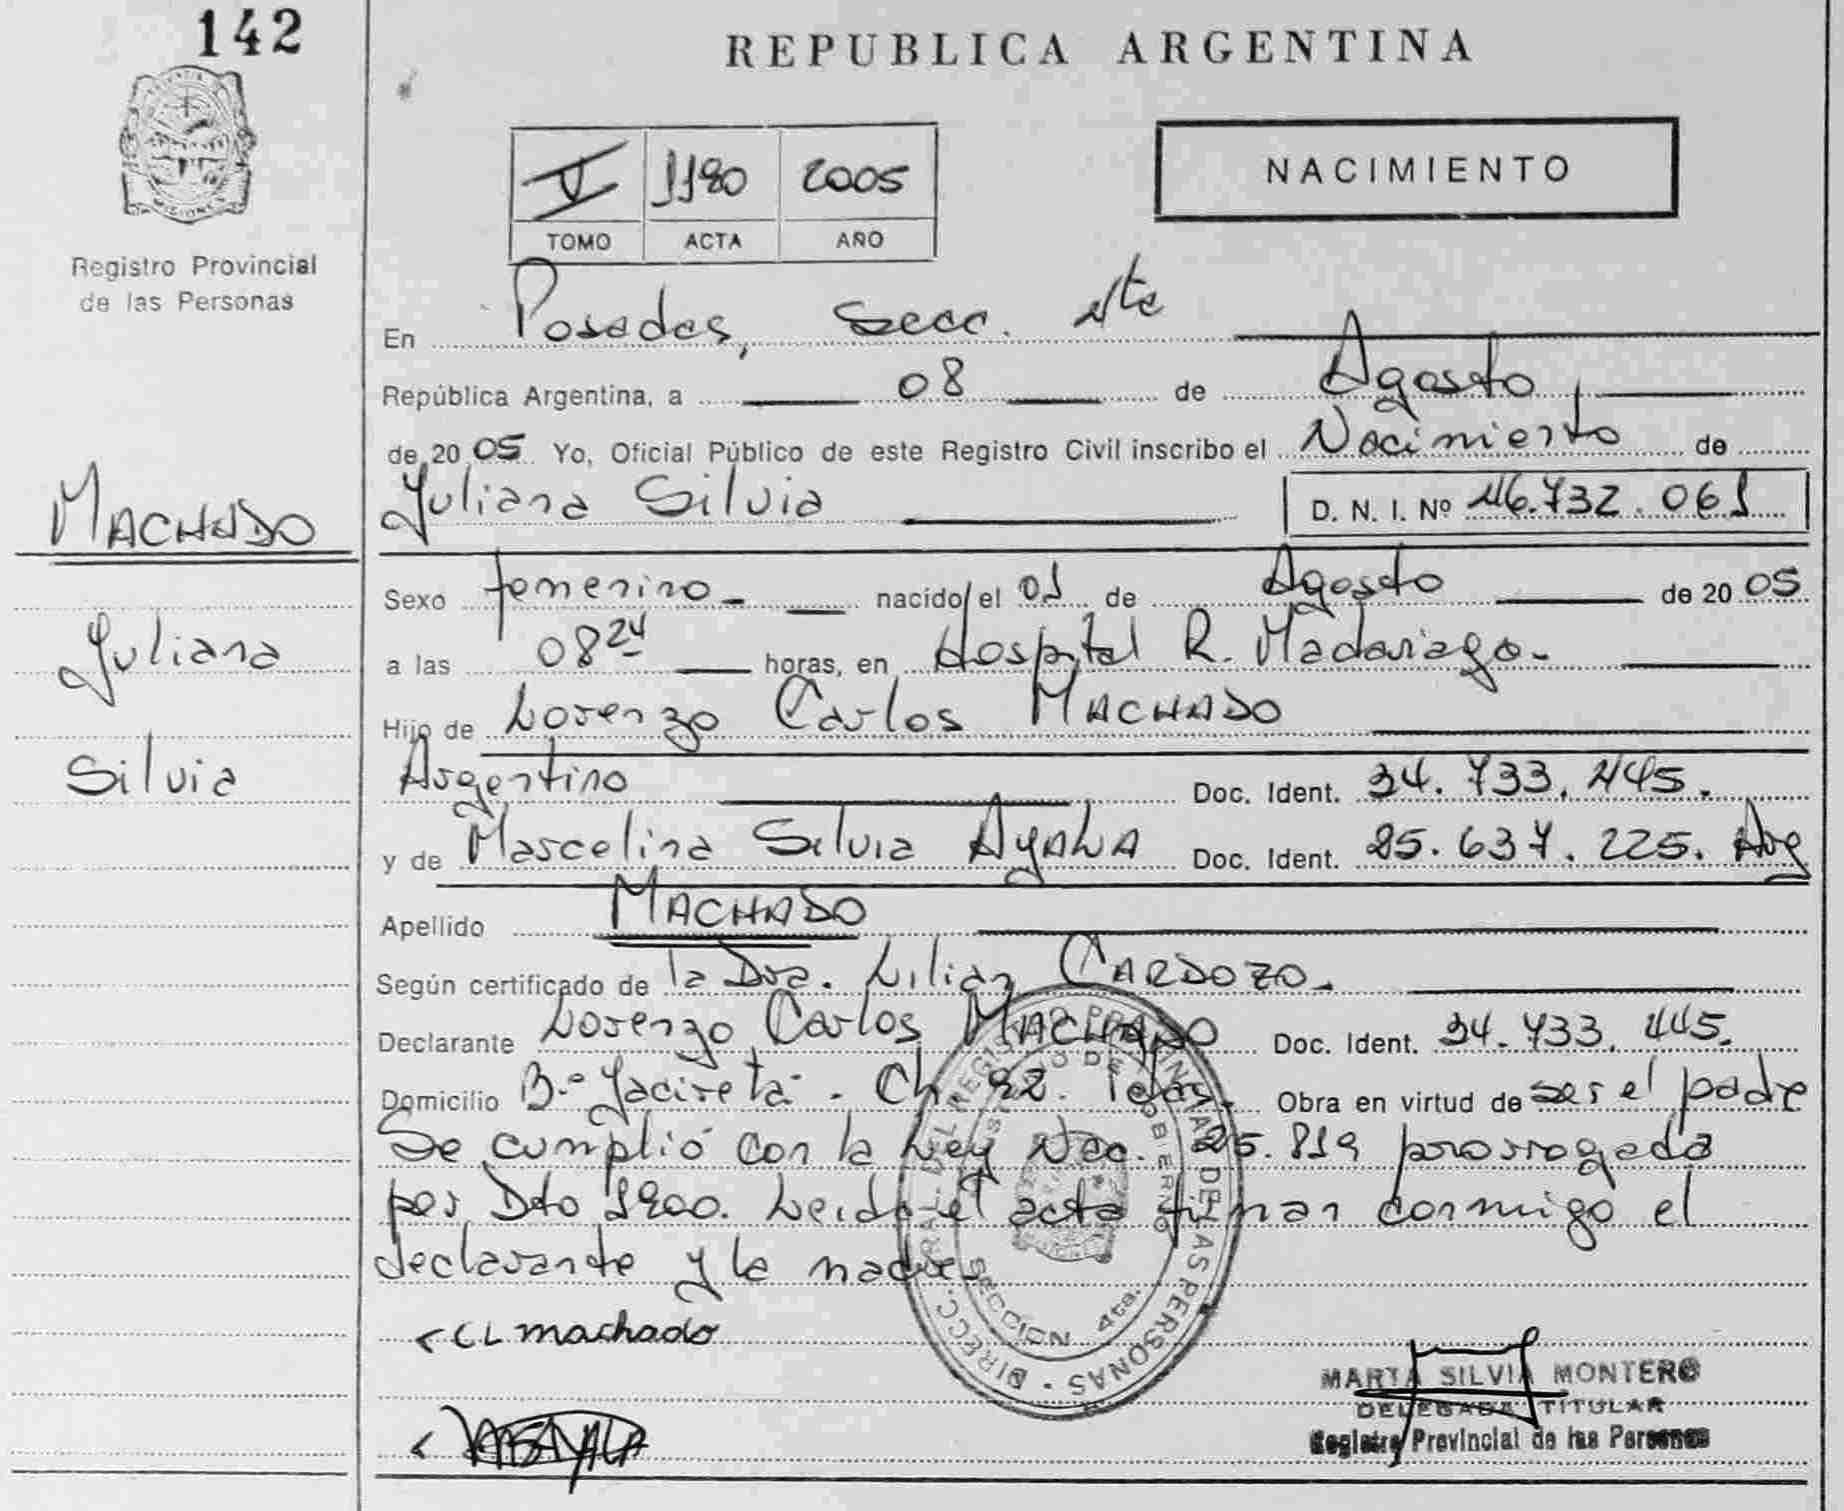 142
REPUBLICA ARGENTINA
Registro Provincial
de las Personas
V 1190 2005
TOMO ACTA AÑO
NACIMIENTO
En Posadas, Secc. 4ta
República Argentina, a 08 de Agosto
de 2005 Yo, Oficial Público de este Registro Civil inscribo el Nacimiento de
Juliana Silvia D. N. I. Nº 46.732.061
MACHADO
Juliana
Silvia
Sexo femenino nacido el 01 de Agosto de 2005
a las 08 24 horas, en Hospital R. Madariaga.
Hijo de Lorenzo Carlos MACHADO
Argentino Doc. Ident. 34.733.445.
y de Marcelina Silvia AYALA Doc. Ident. 25.637.225. Arg
Apellido MACHADO
Según certificado de la Dra. Lilian CARDOZO.
Declarante Lorenzo Carlos MACHADO Doc. Ident. 34.733.445.
Domicilio B.º Yaciretá. Ch. 92. Obra en virtud de ser el padre
Se cumplió con la Ley Nac. 25.819 prorrogada
por Dto 1900. Leida el acta firman conmigo el
declarante y la madre
CL machado
DIRECC. GRAL. DEL REGISTRO PROVINCIAL DE LAS PERSONAS
SECCION 4ta.
MARTA SILVIA MONTERO
DELEGADA TITULAR
Registro Provincial de las Personas